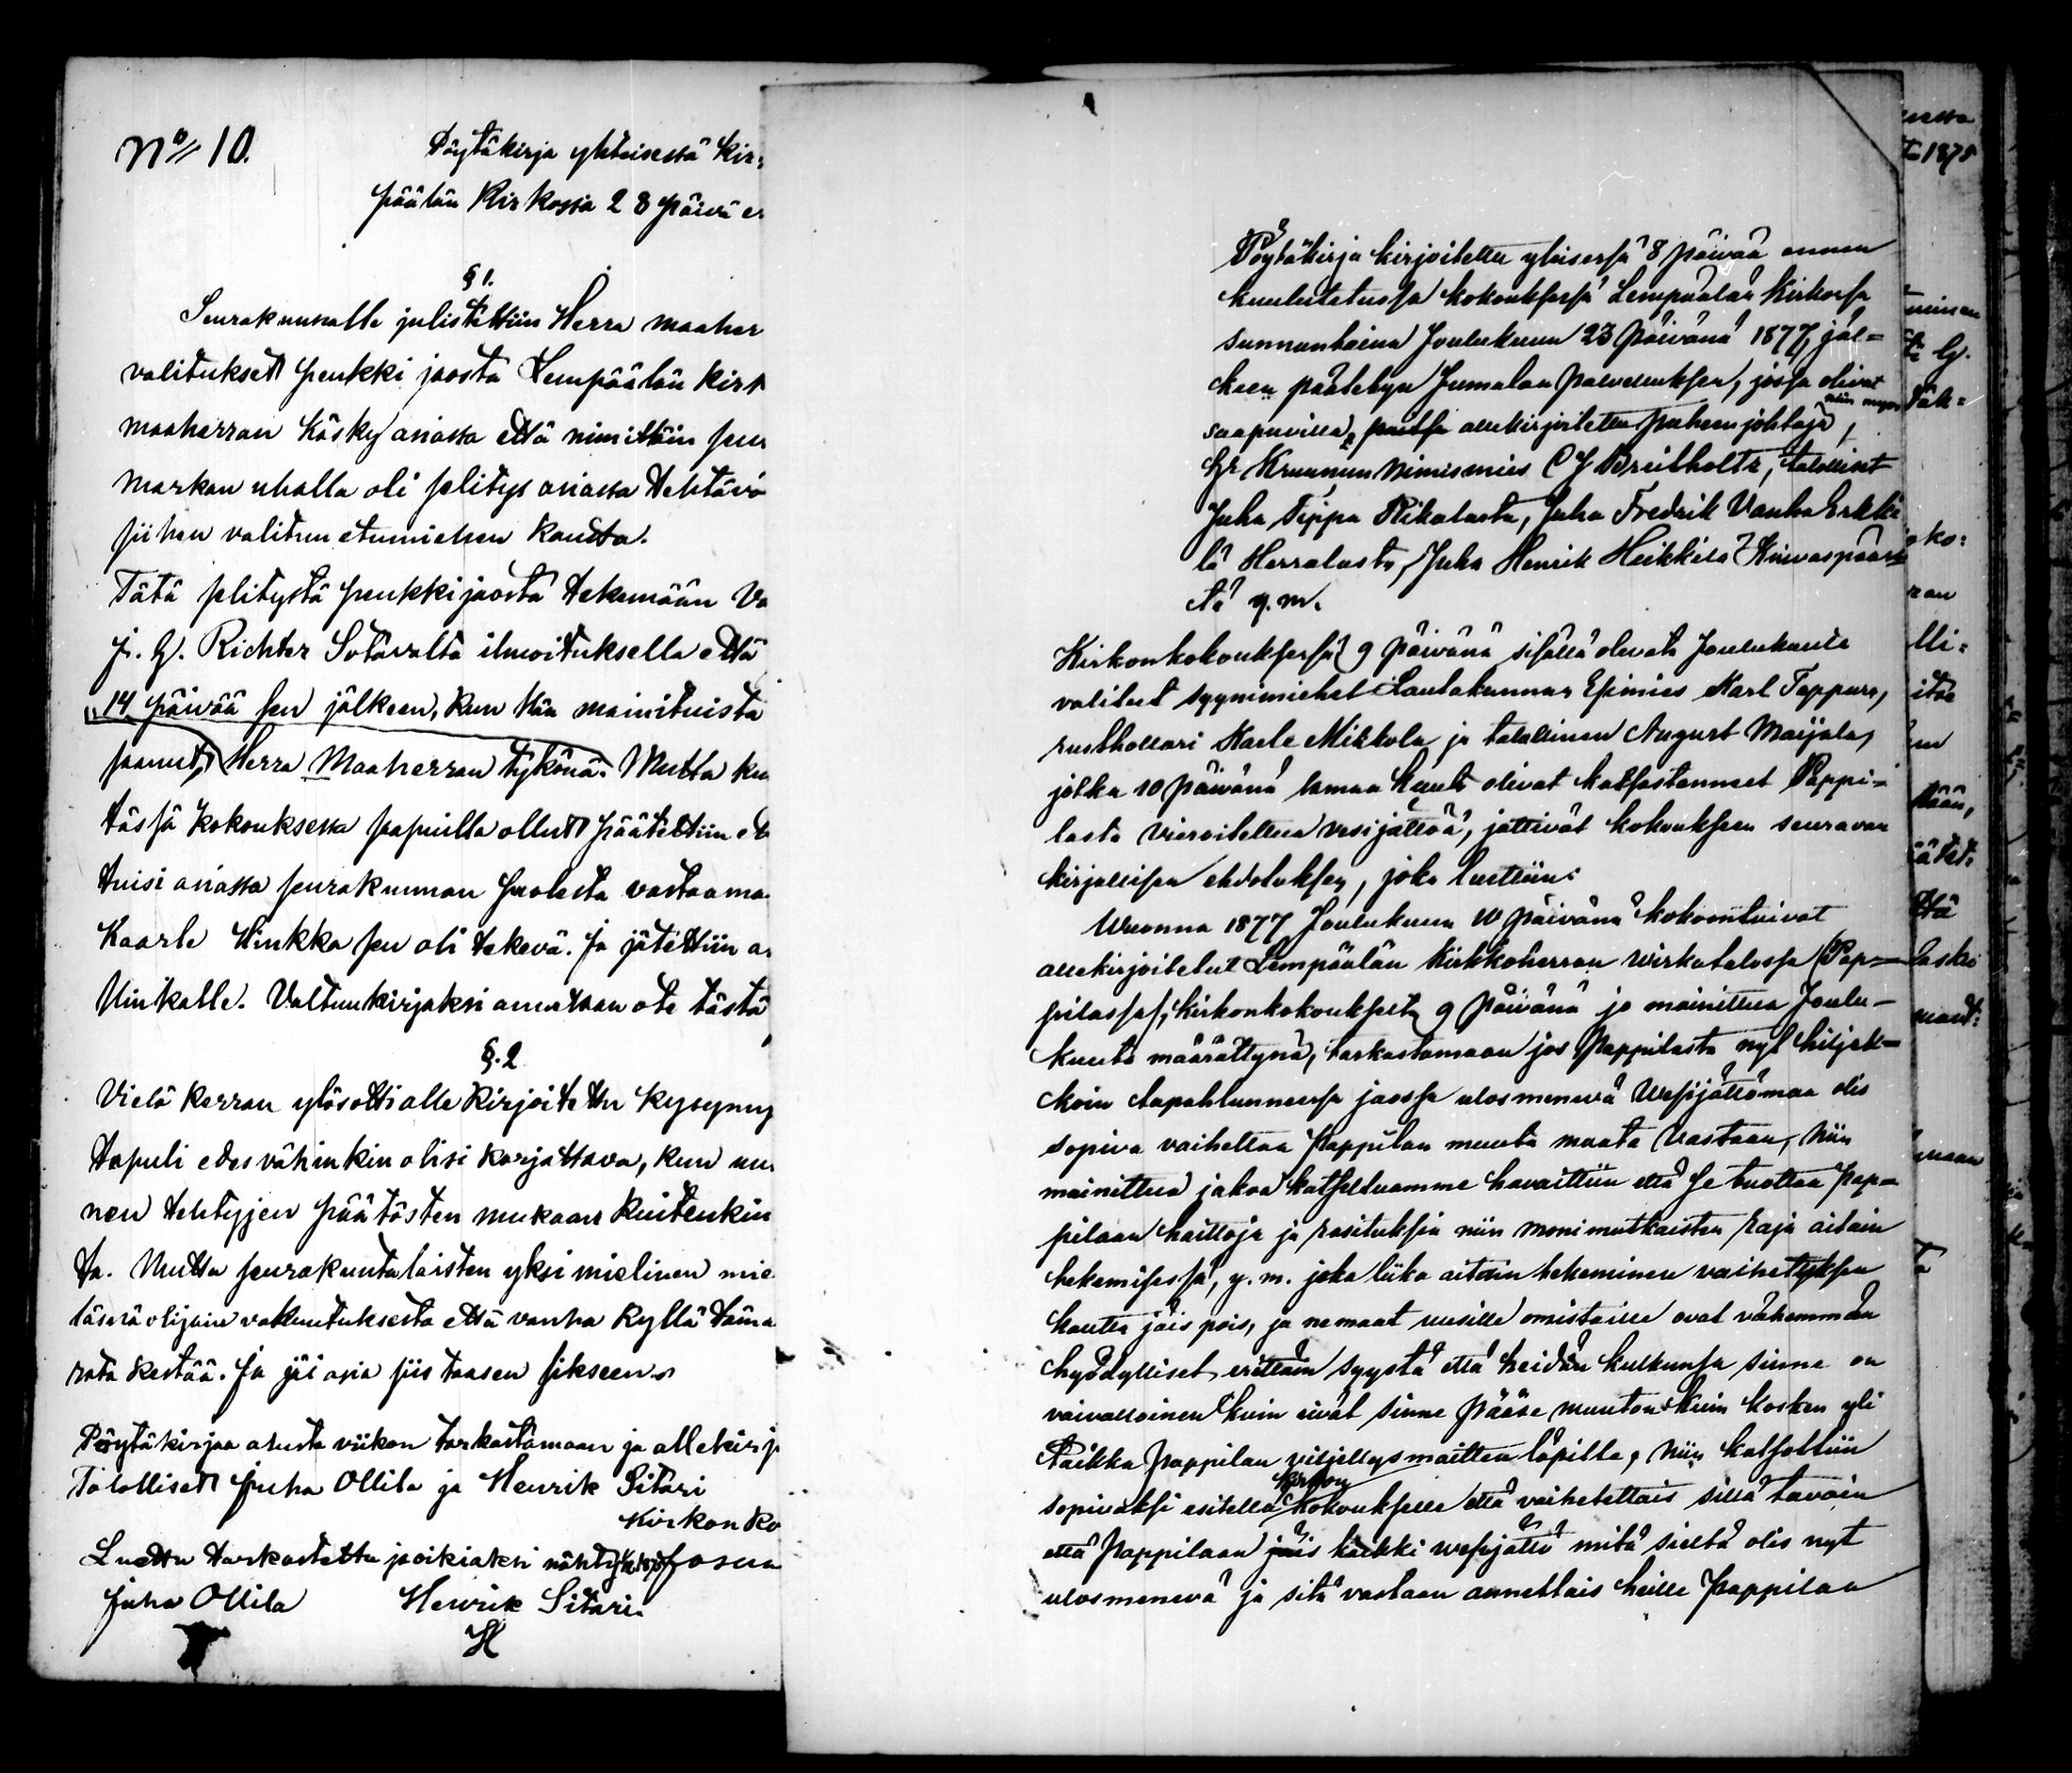 No 10.
Pöytäkirja yhteisessä kir-
päälän Kirkossa 28 päivä
§ 1.
Seurakunnalle julistettiin Herra maaher
valitukset penkki jaosta Lempäälän kirk
maaherran käsky asiassa että nimittäin
markan uhalla oli selitys asiassa tehtävä
siihen valitun etumiehen kautta.
Tätä selitystä penkkijaosta tekemään Va
J. G. Richter Sotavalta ilmoituksella että
14 päivää sen jälkeen, kun hän mainituista
saanut, Herra Maaherran tykönä. Mutta ku
tässä kokouksessa sapuilla ollut päätettiin et
tuisi asiassa seurakunnan puolesta vastaama
Kaarle Hinkka sen oli tekevä. Ja jätettiin a
Hinkalle. Valtuukirjaksi annetaan ote tästä
§. 2
Vielä kerran ylösotti alle kirjoitettu kysymy
tapuli edes vähinkin olisi korjattava, kun
nen tehtyjen päätösten mukaan kuitenkin
ta. Mutta seurakuntalaisten yksimielinen mie
läsnäolijain vakuutuksesta että vanha kyllä täm
rata kestää. Ja jäi asia siis taasen sikseen.
Pöytäkirjaa astuvat viikon tarkastamaan ja allekirj
Talolliset Juha Ollila ja Henrik Sitari
Kirkon ko
Luettu tarkastettu ja oikiaksi nähty
Juha Ollila Henrik Sitari
Pöytäkirja kirjoitettu yleisessä 8 päivää ennen
kuulutetussa kokouksessa Lempäälän Kirkossa
sunnuntaina Joulukuun 23 päivänä 1877, jäl-
keen päätetyn Jumalan palveluksen, jossa olivat
saapuvilla, paitsi allekirjoitettu puheenjohtaja, niin myös
Hr Kruunun Nimismies C J Breitholtz, talolliset
Juha Sippa Rikalasta, Juha Fredrik Vanha Erkki
lä Herralasta, Juha Henrik Heikkilä Hiivaspääs-
tä y. m.
Kirkonkokouksessa 9 päivänä sisällä olevata Joulukuuta
valitut syynimiehet Lautakunnan Esimies Karl Teppura,
rusthollari Kaarle Mikkola ja talollinen August Maijala,
jotka 10 päivänä samaa kuuta olivat katsastanneet Pappi-
lasta vieroitettua vesijättöä, jättivät kokoukseen seuravan
kirjallisen ehdotuksen, joka luettiin:
Wuonna 1877 Joulukuun 10 päivänä kokoontuivat
allekirjoitetut Lempäälän Kirkkoherran wirkatalossa (Pap-
pilassa), kirkonkokoukselta 9 päivänä jo mainittua Joulu-
kuuta määrättynä, tarkastamaan jos Pappilasta nyt hiljak-
koin tapahtunneessa jaossa ulosmenevä Wesijättömaa olis
sopiva vaihettaa Pappilan muuta maata vastaan, Niin
mainittua jakoa katseltuamme havaittiin että se tuottaa Pap-
pilaan haittoja ja rasituksia niin monimutkaisten raja aitain
tekemisessä, y. m. joka liika aitain tekeminen vaihetuksen
kautta jäis pois, ja ne maat uusille omistaille ovat vähemmän
hyödylliset, erittäin syystä että heidän kulkunsa sinne on
vaivalloinen kuin eivät sinne pääse muuton kuin kosken yli
taikka Pappilan viljellysmaitten läpitte, Niin katsottiin
sopivaksi esitellä kirkon kokoukselle että vaihetettais sillä tavoin
että Pappilaan jäis kaikki wesijättö mitä sieltä olis nyt
ulosmenevä ja sitä vastaan annettais heille Pappilan
1878